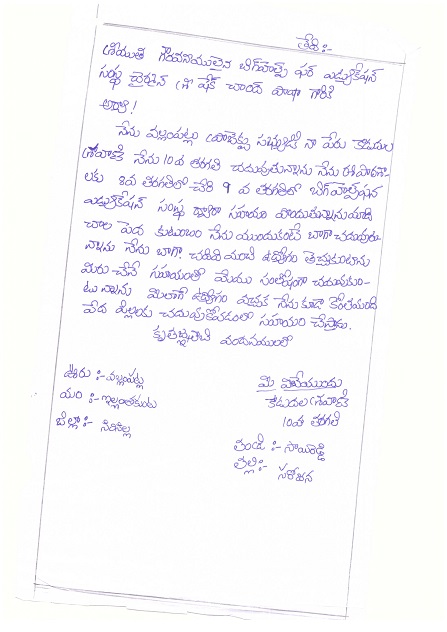 తేది :-
శ్రీయుత గౌరవనియులైన బిగ్‌హెల్ప్ ఫర్ ఎడ్యుకేషన్
సంస్థ చైర్మెన్ శ్రీ షేక్ చాంద్ పాషా గారికి
అర్యా!
నేను వల్లంపట్లు సభ్యుడిని నా పేరు కేదుదుల
శ్రావణ్ నేను 10వ తరగతి చదువుతున్నాను నేను ఈ పాఠశా
లకు 8వ తరగతిలో చేరి 9 వ తరగతిలో బిగ్‌హెల్ప్‌ఫర్
ఎడ్యుకేషన్ సంస్థ ద్వారా సహాయం పొందుతున్నాను మాది
చాల పెద కుటుంబం నేను ముందుకంటే బాగా చదువుతు
న్నాను నేను బాగా చదివి మంచి ఉద్యోగం తెచ్చుకుంటాను
మిరు చేసే సహాయంతో మేము సంతోషంగా చదువుకుం-
టున్నాను మిలాగే ఉద్యోగం వచ్చాక నేను కూడా కొంతమంది
పేద పిల్లలను చదువుకోవడంలో సహాయం చేస్తాను.
కృతజ్ఞతలతో వందనములతో
ఊరు :- వల్లంపట్లు
మం :- ఇల్లంతకుంట
జిల్లా :- సిరిసిల్ల
మి విధేయుడు
కేదుదల శ్రావణ్
10వ తరగతి
తండ్రి :- సాయిరెడ్డి
తల్లి :- సరోజన